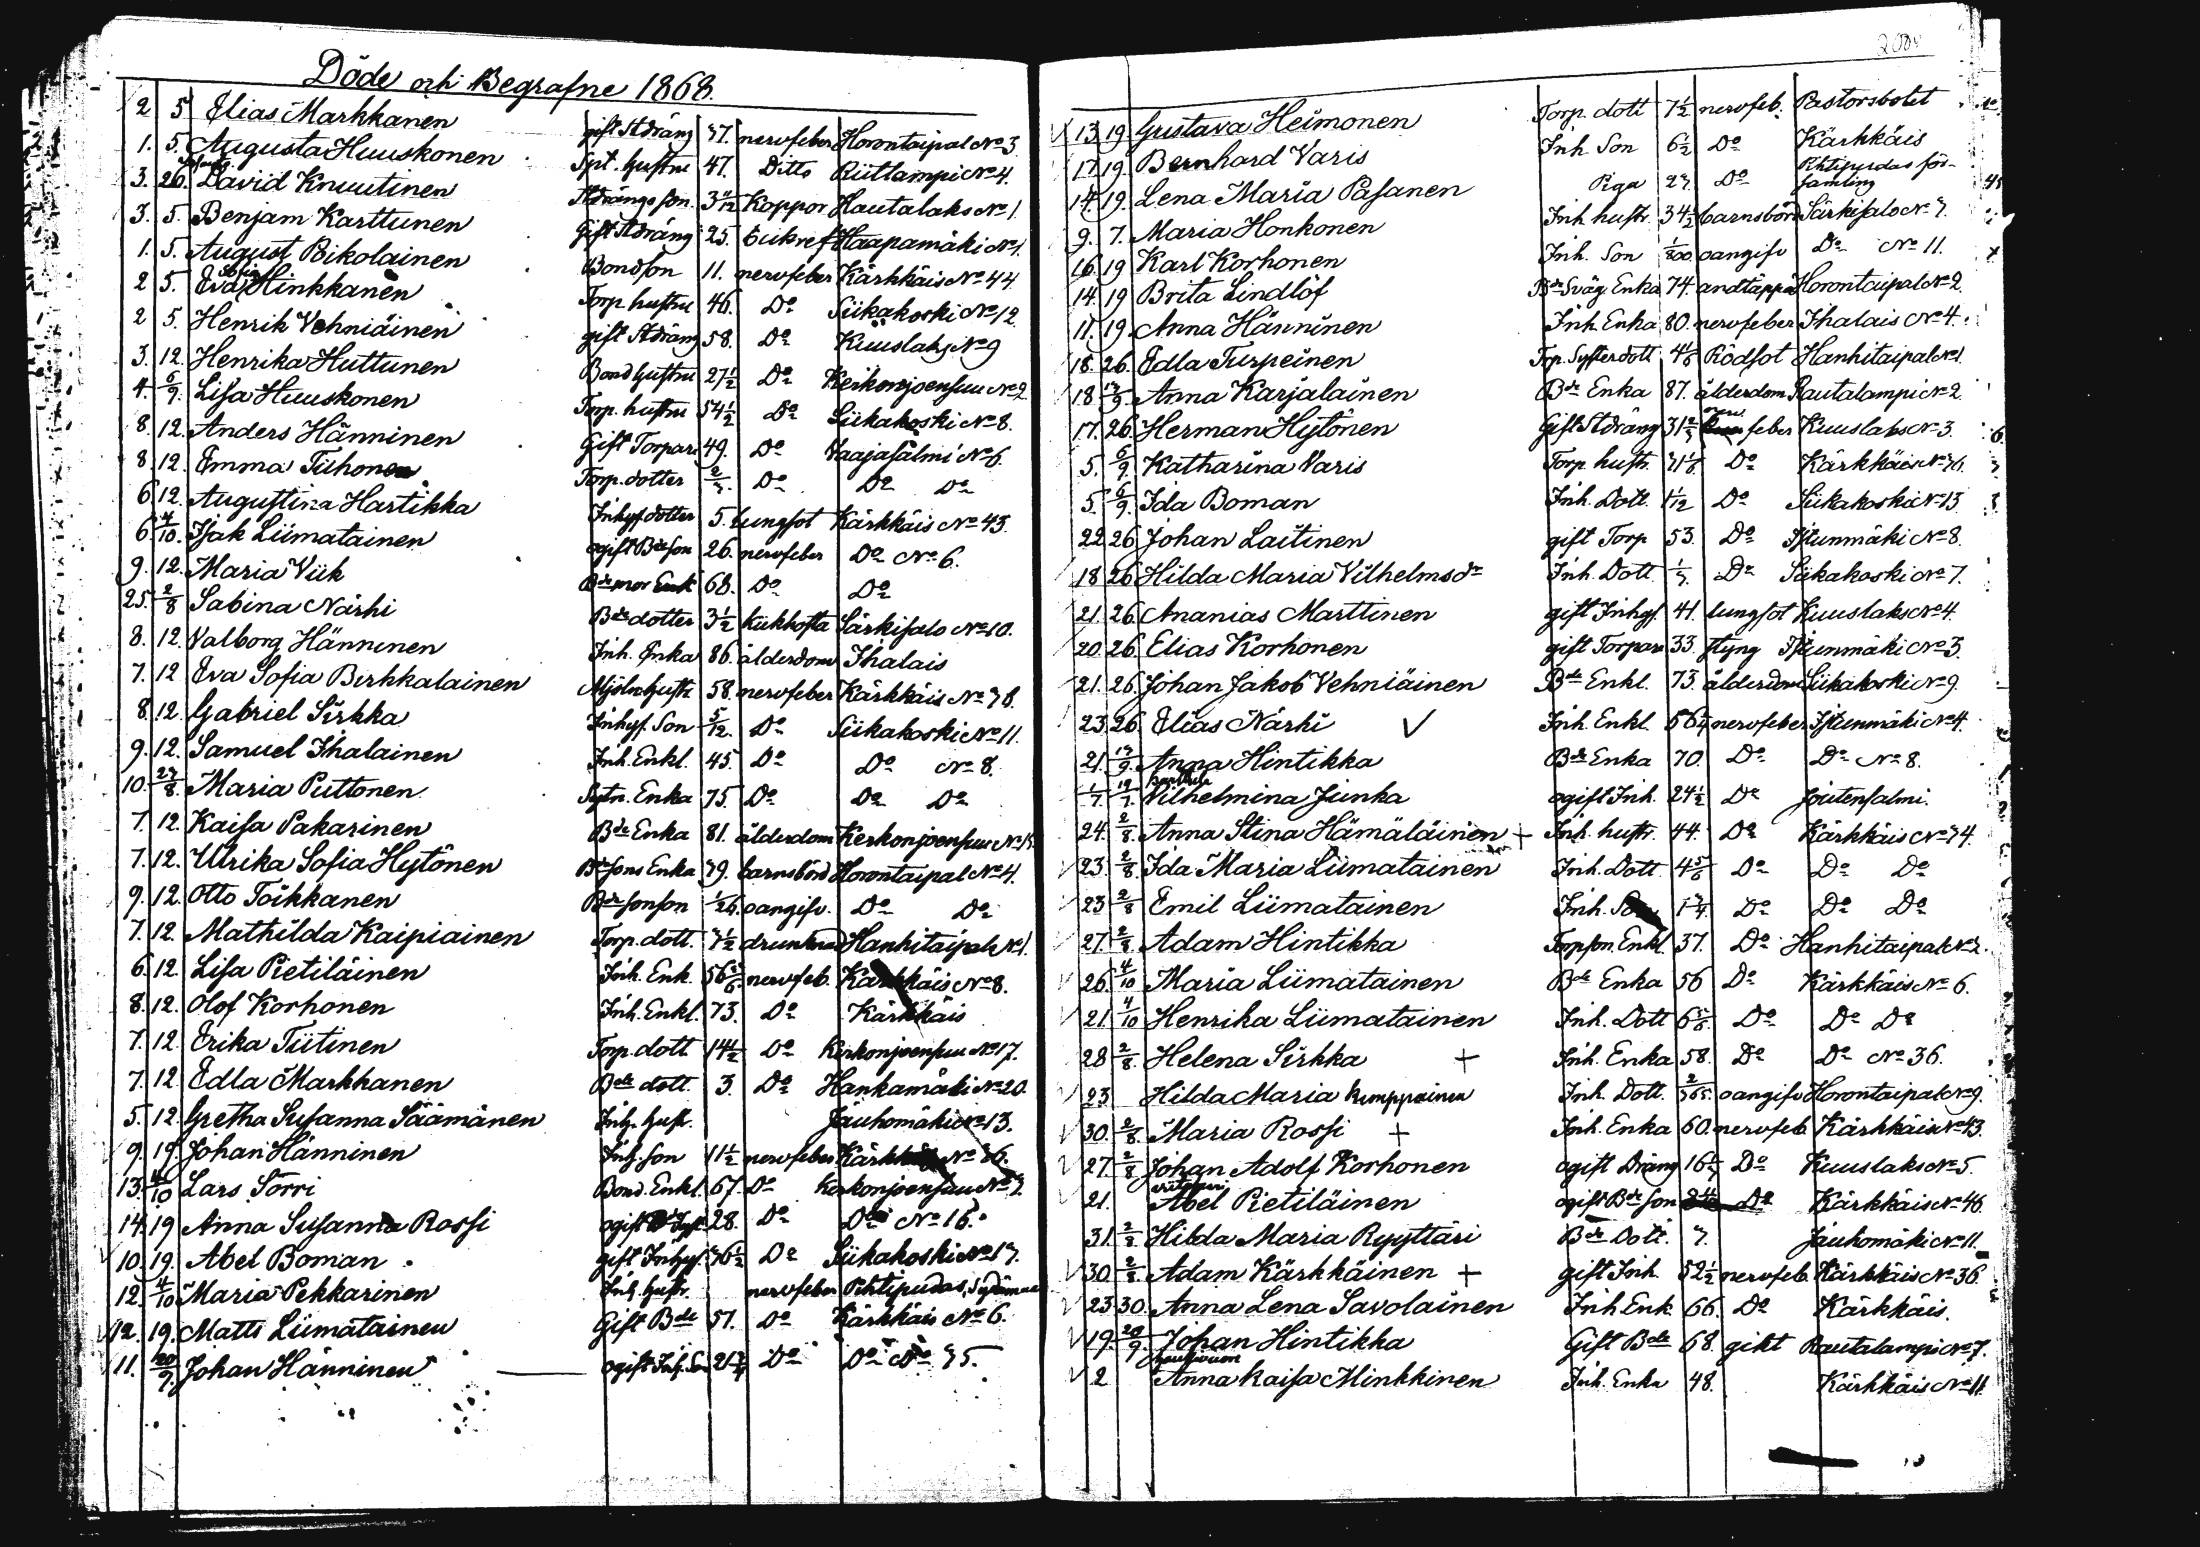 Döde och Begrafne 1868.
2 5 Elias Markkanen gift Stdräng 37. nervfeber Horontaipal No 3
1. 5. Augusta Huuskonen Spt. hustru 47. Ditto Riittlampi No 4.
3. 26. David Knuutinen Stdrängs son. 3 11/12 Koppor Hautalaks No 1.
3. 5. Benjam Karttunen Gift Stdräng 25. Haapamäki No 1.
1. 5. August Pikolainen Bondson 11. nervfeber Kärkkäis No 44
2 5. Eva Sofia Hinkkanen Torp. hustru 46. Do Siikakoski No 12.
2 5. Henrik Vehniäinen gift Stdräng 58. Do Kuuslaks No 9
3. 12. Henrika Huttunen Bond hustru 27 1/2 Do Kerkonjoensuu No 2
4. 6/9. Lisa Huuskonen Torp. hustru 54 1/2 Do Siikakoski No 8.
8. 12. Anders Hänninen Gift Torpare 49. Do Vaajasalmi No 6.
8. 12. Emma Tiihonen Torp. dotter 2/3. Do Do Do
6. 12. Augustina Hartikka Inhys. dotter 5. lungsot Kärkkäis No 45.
6. 4/10. Isak Liimatainen ogift Bde son 26. nervfeber Do No 6.
9. 12. Maria Viik Bde mor Enk 68. Do Do
25. 2/8 Sabina Närhi Bde dotter 3 1/2 kikhosta Särkisalo No 10.
8. 12. Valborg Hänninen Inh. Enka 86. ålderdom Ihalais
7. 12 Eva Sofia Birkkalainen Mjöln. hustr 58. nervfeber Kärkkäis No 38.
8. 12. Gabriel Sirkka Inhys. Son 5/12. Do Siikakoski No 11.
9. 12. Samuel Ihalainen Inh. Enkl. 45. Do Do No 8.
10. 27/8. Maria Puttonen Sytn. Enka 75. Do Do Do
7. 12. Kaisa Pakarinen Bde Enka 81. ålderdom Kerkonjoensuu
7. 12. Ulrika Sofia Hytönen Bde sons Enka 39. barnsbörd Horontaipal No 4.
9. 12. Otto Toikkanen Bde sonson 1/26. oangifv. Do Do
7. 12. Mathilda Kaipiainen Torp. dott. 7 1/2 drunknad Hanhitaipale No 1.
6. 12. Lisa Pietiläinen Inh. Enk. 56 5/6 nervfeb. Kärkkäis No 8.
8. 12. Olof Korhonen Inh. Enkl. 73. Do Kärkkäis
7. 12. Erika Tiitinen Torp. dott 14 1/2 Do Kerkonjoensuu No 17.
7. 12 Edla Markkanen Bde dott. 3. Do Hankamäki No 20.
5. 12. Gretha Susanna Säämänen Inh. hustr. Jauhomäki No 13.
9. 19. Johan Hänninen Inh. son 11 1/2 nervfeber Kärkkäis No 36.
13. 4/10 Lars Torri Bond. Enkl. 67. Do Kerkonjoensuu No 7.
14. 19 Anna Susanna Rossi ogift 28. Do Do No 16.
10. 19. Abel Boman gift Inhys. 76 1/2 Do Siikakoski No 17.
12. 4/10 Maria Pekkarinen Inh. hustr. nervfeber Pihtipudas,
12. 19. Matts Liimatainen Gift Bde 57. Do Kärkkäis No 6.
11. 20/9. Johan Hänninen ogift Inh. Son 21 3/4 Do Do Do 35.
13. 19. Gustava Heimonen Torp. dott 7 1/2 nervfeb. Pastorsbolet
17 19. Bernhard Varis Inh. Son 6 1/2 Do Kärkkäis
14. 19. Lena Maria Pasanen Piga 27. Do Pihtipudas församling
9. 7. Maria Honkonen Inh. hustr. 34 1/2 barnsbörd Särkisalo No 7.
16. 19 Karl Korhonen Inh. Son oangifv Do No 11.
14. 19 Brita Lindlöf Bde Sväg. Enka 74. andtäppa Horontaipal No 2.
11. 19. Anna Hänninen Inh. Enka 80. nervfeber Ihalais No 4.
18. 26. Edla Turpeinen Torp. Systerdott 4 1/6 Rödsot Hanhitaipal No 1.
18. 13/9. Anna Karjalainen Bde Enka 87. ålderdom Rautalampi No 2.
17. 26. Herman Hytönen Gift Stdräng 31 2/3 nerv feber Kuuslaks No 3.
5. 6/9. Katharina Varis Torp. hustr. 31 1/6. Do Kärkkäis No 36.
5. 6/9. Ida Boman Inh. Dott. 1 1/12 Do Siikakoski No 13.
22 26 Johan Laitinen gift Torp 53. Do Istunmäki No 8.
18 26 Hilda Maria Vilhelmsdr Inh. Dott. 1/3. Do Siikakoski No 7.
21. 26. Ananias Marttinen gift Inhys. 41. lungsot Kuuslaks No 4.
20. 26. Elias Korhonen gift Torpare 33. styng Istunmäki No 3.
21. 26. Johan Jakob Vehniäinen Bde Enkl. 73. ålderdom Siikakoski No 9.
23 26. Elias Närhi Inh. Enkl. 56 1/4 nervfeber Istunmäki No 4.
21. 13/9. Anna Hintikka Bde Enka 70. Do Do No 8.
1/7. 19/7. Vilhelmina Junka ogift Inh. 24 1/2 Do Joutensalmi.
24. 2/8. Anna Stina Hämäläinen + Inh. hustr. 44. Do Kärkkäis No 34.
23. 2/8. Ida Maria Liimatainen Inh. Dott. 4 5/6 Do Do Do
23 2/8 Emil Liimatainen Inh. Son 1 3/4. Do Do Do
27. 2/8. Adam Hintikka Torpson. Enkl. 37. Do Hanhitaipale No 2.
26. 4/10 Maria Liimatainen Bde Enka 56 Do Kärkkäis No 6.
21. 4/10 Henrika Liimatainen Inh. Dott 6 5/6. Do Do Do
28 2/8. Helena Sirkka + Inh. Enka 58. Do Do No 36.
23 Hilda Maria Kumppainen Inh. Dott. 2/365. oangifv Horontaipale No 9.
30. 2/8. Maria Rossi + Inh. Enka 60. nervfeb. Kärkkäis No 43.
27. 2/8 Johan Adolf Korhonen ogift Dräng 16 1/3 Do Kuuslaks No 5.
21. Abel Pietiläinen ogift Bde son Do Kärkkäis No 46.
31. 2/8. Hilda Maria Ryyttäri Bde Dott. 7. Jauhomäki No 11.
30. 2/8. Adam Kärkkäinen + gift Inh. 52 1/2 nervfeb. Kärkkäis No 36.
23 30. Anna Lena Savolainen Inh Enk. 66. Do Kärkkäis.
19. 20/9. Johan Hintikka Gift Bde 68. gikt Rautalampi No 7.
2 Anna Kaisa Minkkinen Inh. Enka 48. Kärkkäis No 11.